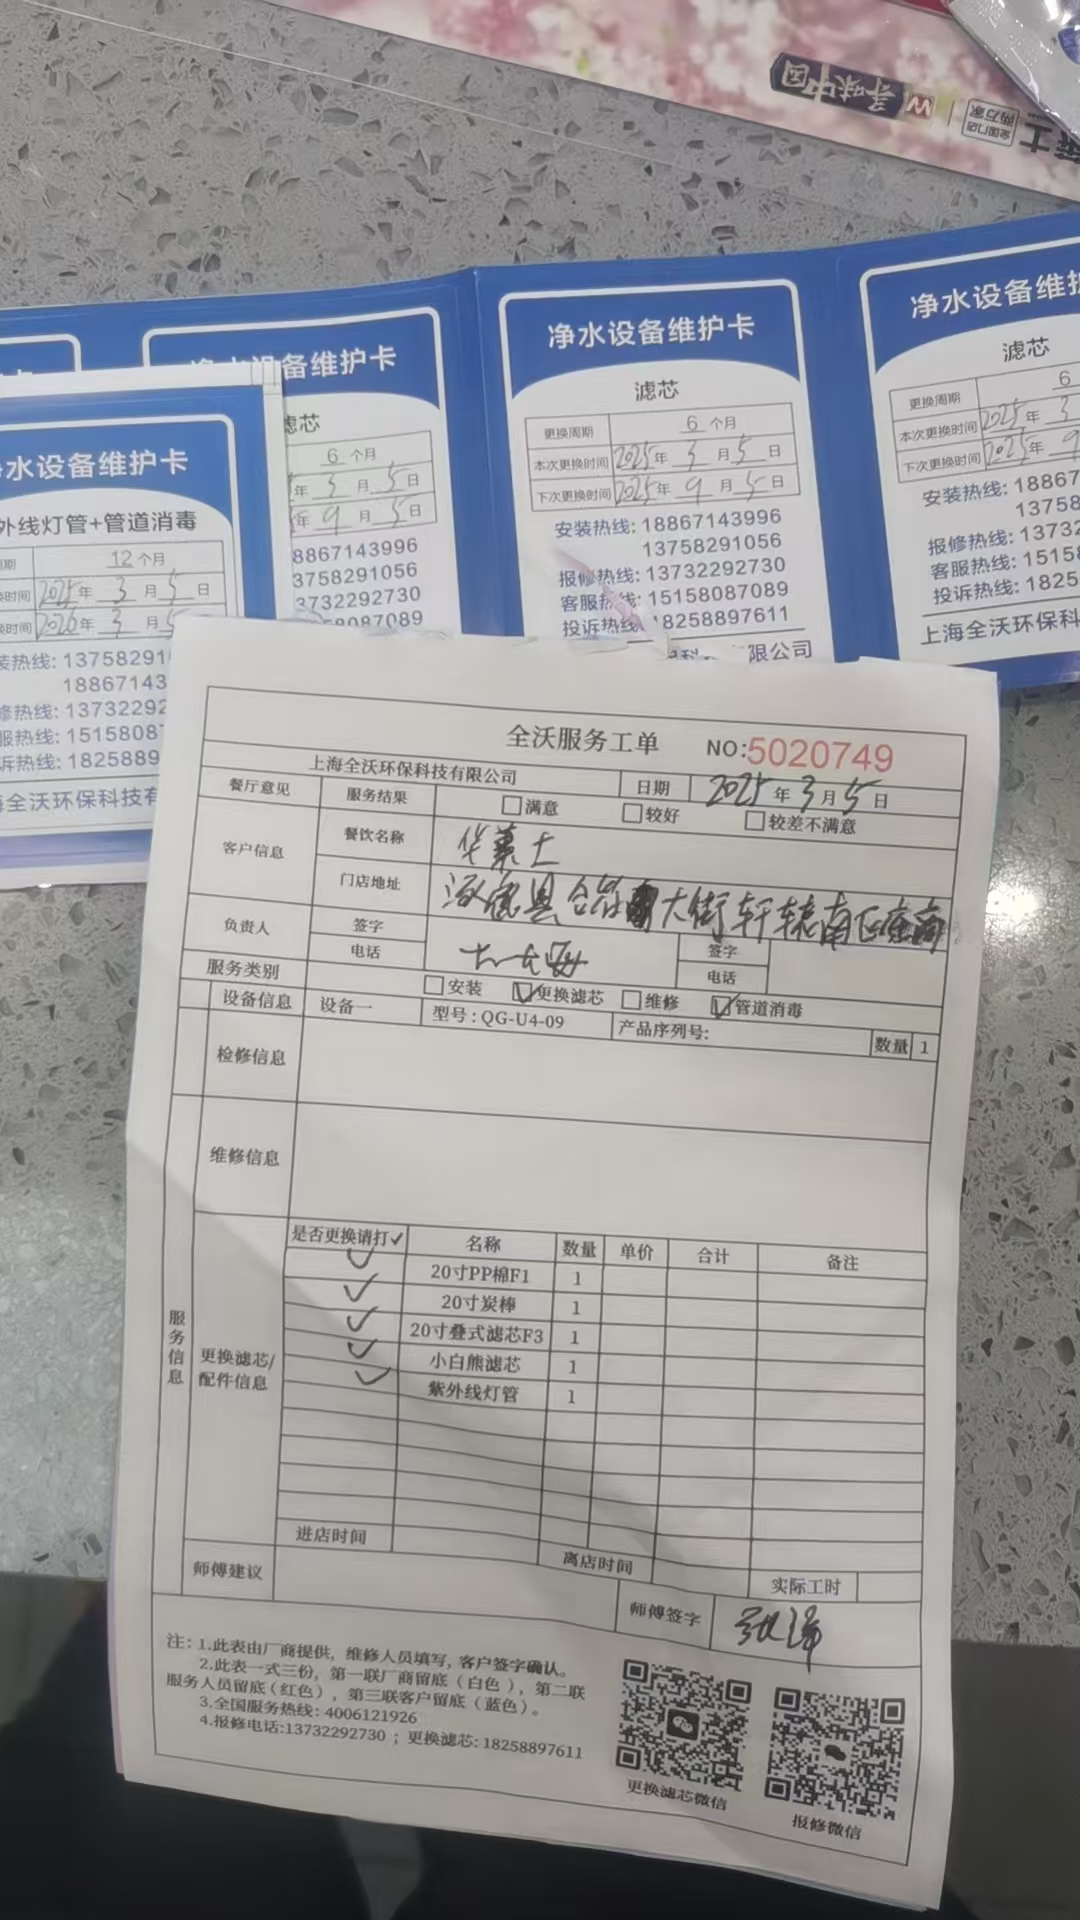 寻味中国
W
全国门店
两万家
士
净水设备维护卡
滤芯
更换周期 6 个月
本次更换时间 2025年 3 月 5 日
下次更换时间 2025年 9 月 5 日
安装热线: 18867143996
13758291056
报修热线: 13732292730
客服热线: 15158087089
投诉热线: 18258897611
限公司
净水设备维护
滤芯
更换周期 6
本次更换时间 2025年 3
下次更换时间 2025年 9
安装热线: 18867
13758
报修热线: 13732
客服热线: 1515
投诉热线: 1825
上海全沃环保科
设备维护卡
滤芯
6 个月
年 3 月 5 日
年 9 月 5 日
8867143996
3758291056
3732292730
8087089
水设备维护卡
外线灯管+管道消毒
期 12 个月
换时间 2025年 3 月 5 日
换时间 2026年 3 月 5
装热线: 13758291
18867143
修热线: 13732292
服热线: 1515808
诉热线: 1825889
海全沃环保科技有
全沃服务工单 NO:5020749
上海全沃环保科技有限公司 日期 2025年3月5日
餐厅意见 服务结果 满意 较好 较差不满意
客户信息 餐饮名称 华莱士
门店地址 大街轩辕南
负责人 签字 签字
电话 电话
服务类别 安装 ✓更换滤芯 维修 ✓管道消毒
设备信息 设备一 型号:QG-U4-09 产品序列号: 数量 1
检修信息
维修信息
服务信息
更换滤芯/配件信息
是否更换请打✓ 名称 数量 单价 合计 备注
✓ 20寸PP棉F1 1
✓ 20寸炭棒 1
✓ 20寸叠式滤芯F3 1
✓ 小白熊滤芯 1
✓ 紫外线灯管 1
进店时间 离店时间 实际工时
师傅建议 师傅签字
注:1.此表由厂商提供，维修人员填写，客户签字确认。
2.此表一式三份，第一联厂商留底（白色），第二联
服务人员留底（红色），第三联客户留底（蓝色）。
3.全国服务热线:4006121926
4.报修电话:13732292730；更换滤芯:18258897611
更换滤芯微信
报修微信